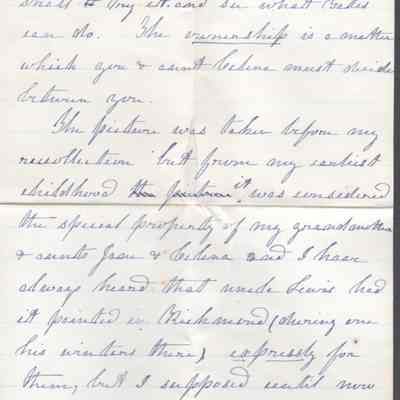 shall try it. and see what Relics
can do. The ownership is a matter
which you & aunt Celina must decide
between you.
The picture was taken before my
recollection but from my earliest
childhood the picture it was considered
the special property of my grandmother
& aunts Jean & Celina and I have
always heard that uncle Lewis had
it painted in Richmond (during one
his winters there) expressly for
them, but I supposed until now